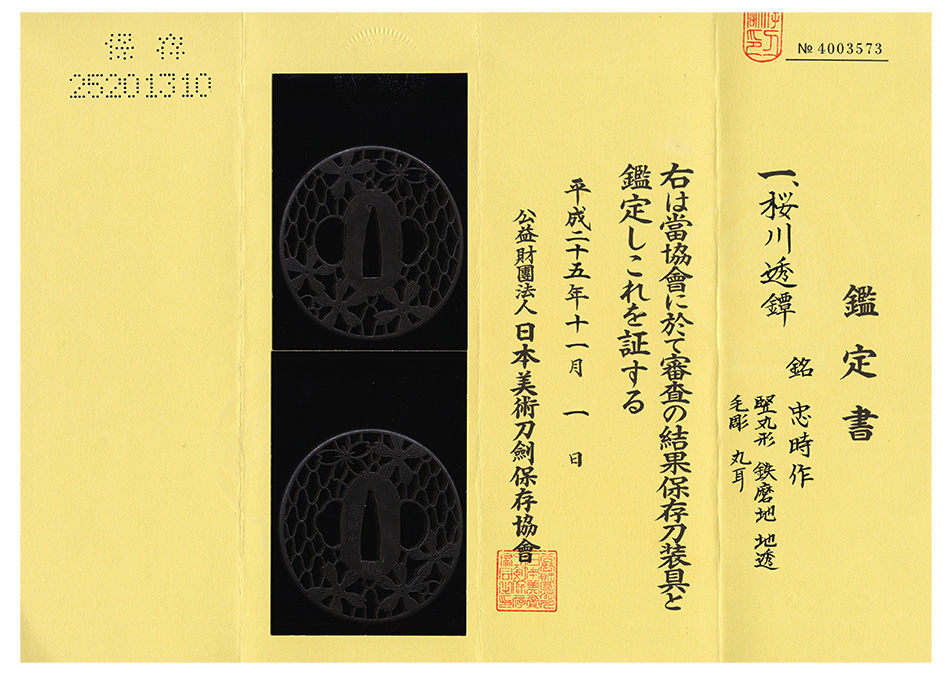 № 4003573
鑑定書
一、桜川透鐔
銘 忠時作
竪丸形 鉄磨地 地透
毛彫 丸耳
右は當協會に於て審査の結果保存刀装具と
鑑定しこれを証する
平成二十五年十一月 一 日
公益財團法人 日本美術刀劍保存協會
保存
25201310